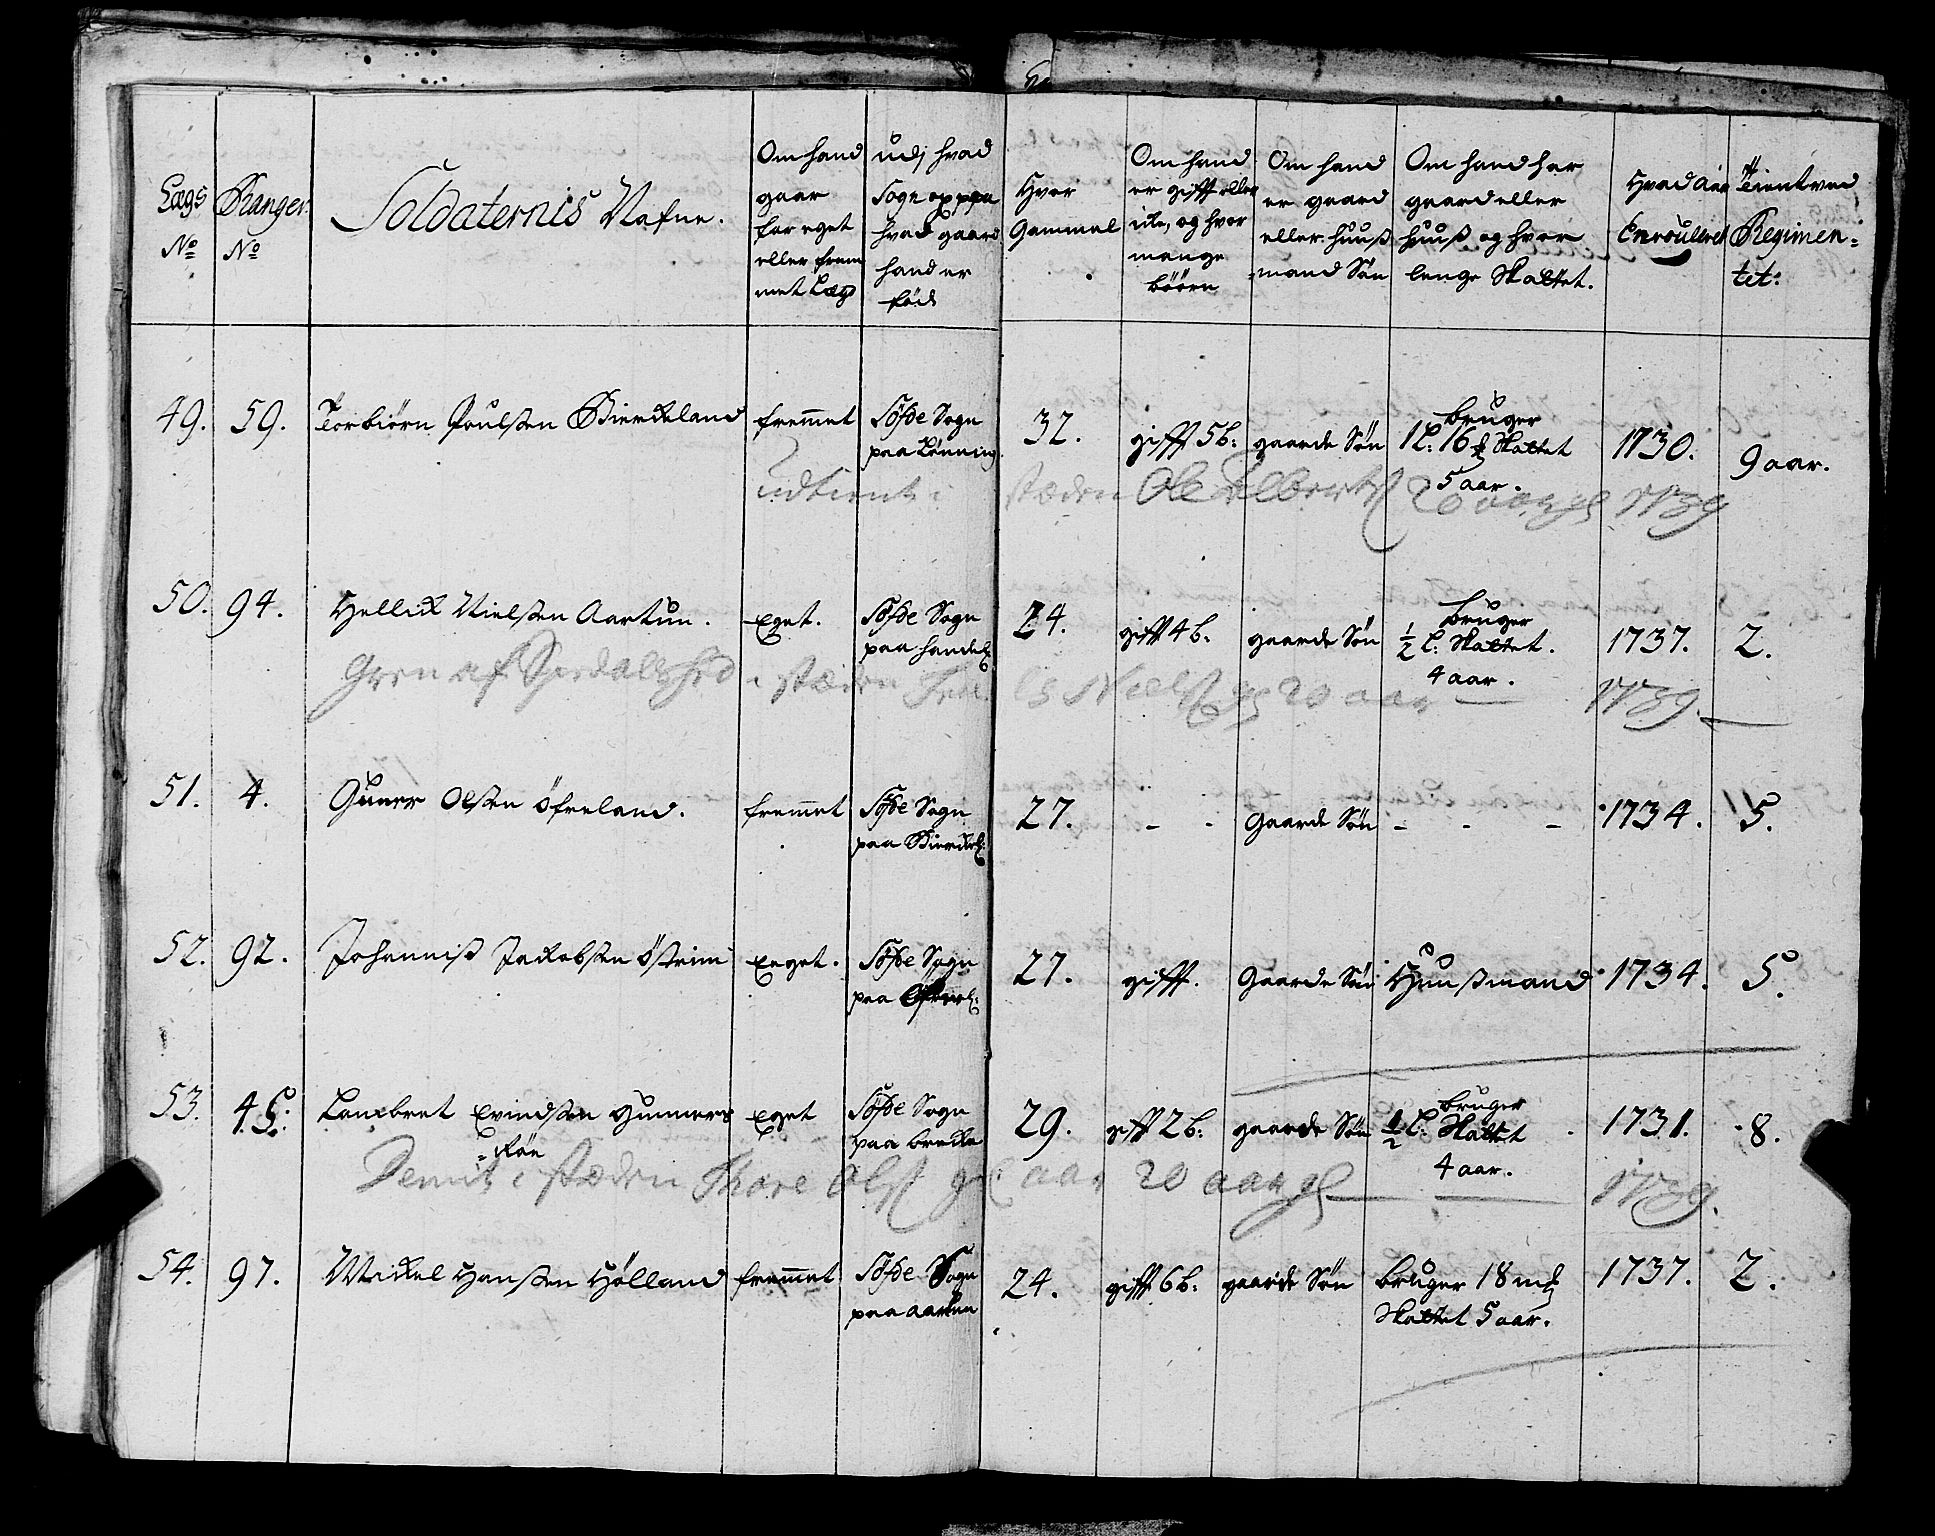 Lægs No
Ranger No
Soldaternis Nafne.
Om hand gaar for eget eller frem met Læg
udj hvad Sogn og paa hvad gaard hand er fød
Hvor Gammel
Om hand er gifft eller icke, og hvor mange böörn
Om hand er gaard eller huuß mand Søn
Om hand har gaard eller huuß og hvor lenge Skattet.
Hvad Aar Enroulleret
Tient ved Regimen= tet:
49. 59. Torbiørn Poulsen Bierckeland fremmet Søfde Sogn paa Lønning 32. gifft 5 b: gaarde Søn bruger 1 L: 16 Skattet 5 aar. 1730. 9 aar.
udtient i stæden Ole 20 aar gl 1739
50. 94. Hellick Nielsen Aartun. Eget. Søfde Sogn paa Sande 24. gifft 4 b: gaarde Søn bruger ½ L: Skattet. 4 aar. 1737. 2.
i stæden Niels gl 20 aar 1739.
51. 4. Guner Olsen Öfreland. fremmet Søfde Sogn paa Bierckel: 27. - - Gaarde Søn - - - 1734. 5.
52. 92. Johanniß Jackobsen Östrim Eeget. Søfde Sogn paa 27. gifft. Gaarde Søn Huußmand 1734. 5.
53. 45: Lambret Evindsen Gunners= Röe Eget Søfde Sogn paa brecke 29. gifft 2 b: gaarde Søn bruger ½ L: Skattet 4 aar. 1731. 8.
Demit i stæden Thore Ols 20 aar gl 1739.
54. 97. Mickel Hansen Hølland fremmet Søfde Sogn paa aartun 24. gifft 6 b: gaarde Søn bruger 18 Skattet 5 aar. 1737. 2.